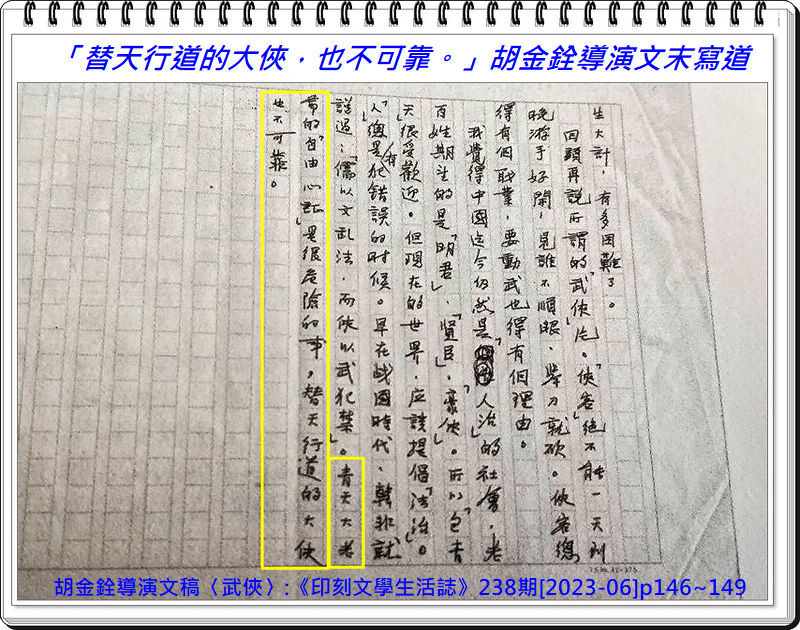 「替天行道的大俠，也不可靠。」胡金銓導演文末寫道
生大計，有多困難了。
回頭再說所謂的「武俠」片。「俠客」絕不能一天到
晚游手好閒，見誰不順眼、舉刀就砍。俠客總
得有個職業，要動武也得有個理由。
我覺得中國迄今仍然是「人治」的社會，老
百姓期望的是「明君」、「賢臣」、「豪俠」。所以「包青
天」很受歡迎。但現在的世界，应該提倡「法治」。
「人」總是有犯錯誤的时候。早在战國時代，韓非就
說過：「儒以文乱法，而俠以武犯禁」。青天大老
爺的「自由心証」是很危险的事，替天行道的大俠
也不可靠。
胡金銓導演文稿〈武俠〉:《印刻文學生活誌》238期[2023-06]p146~149